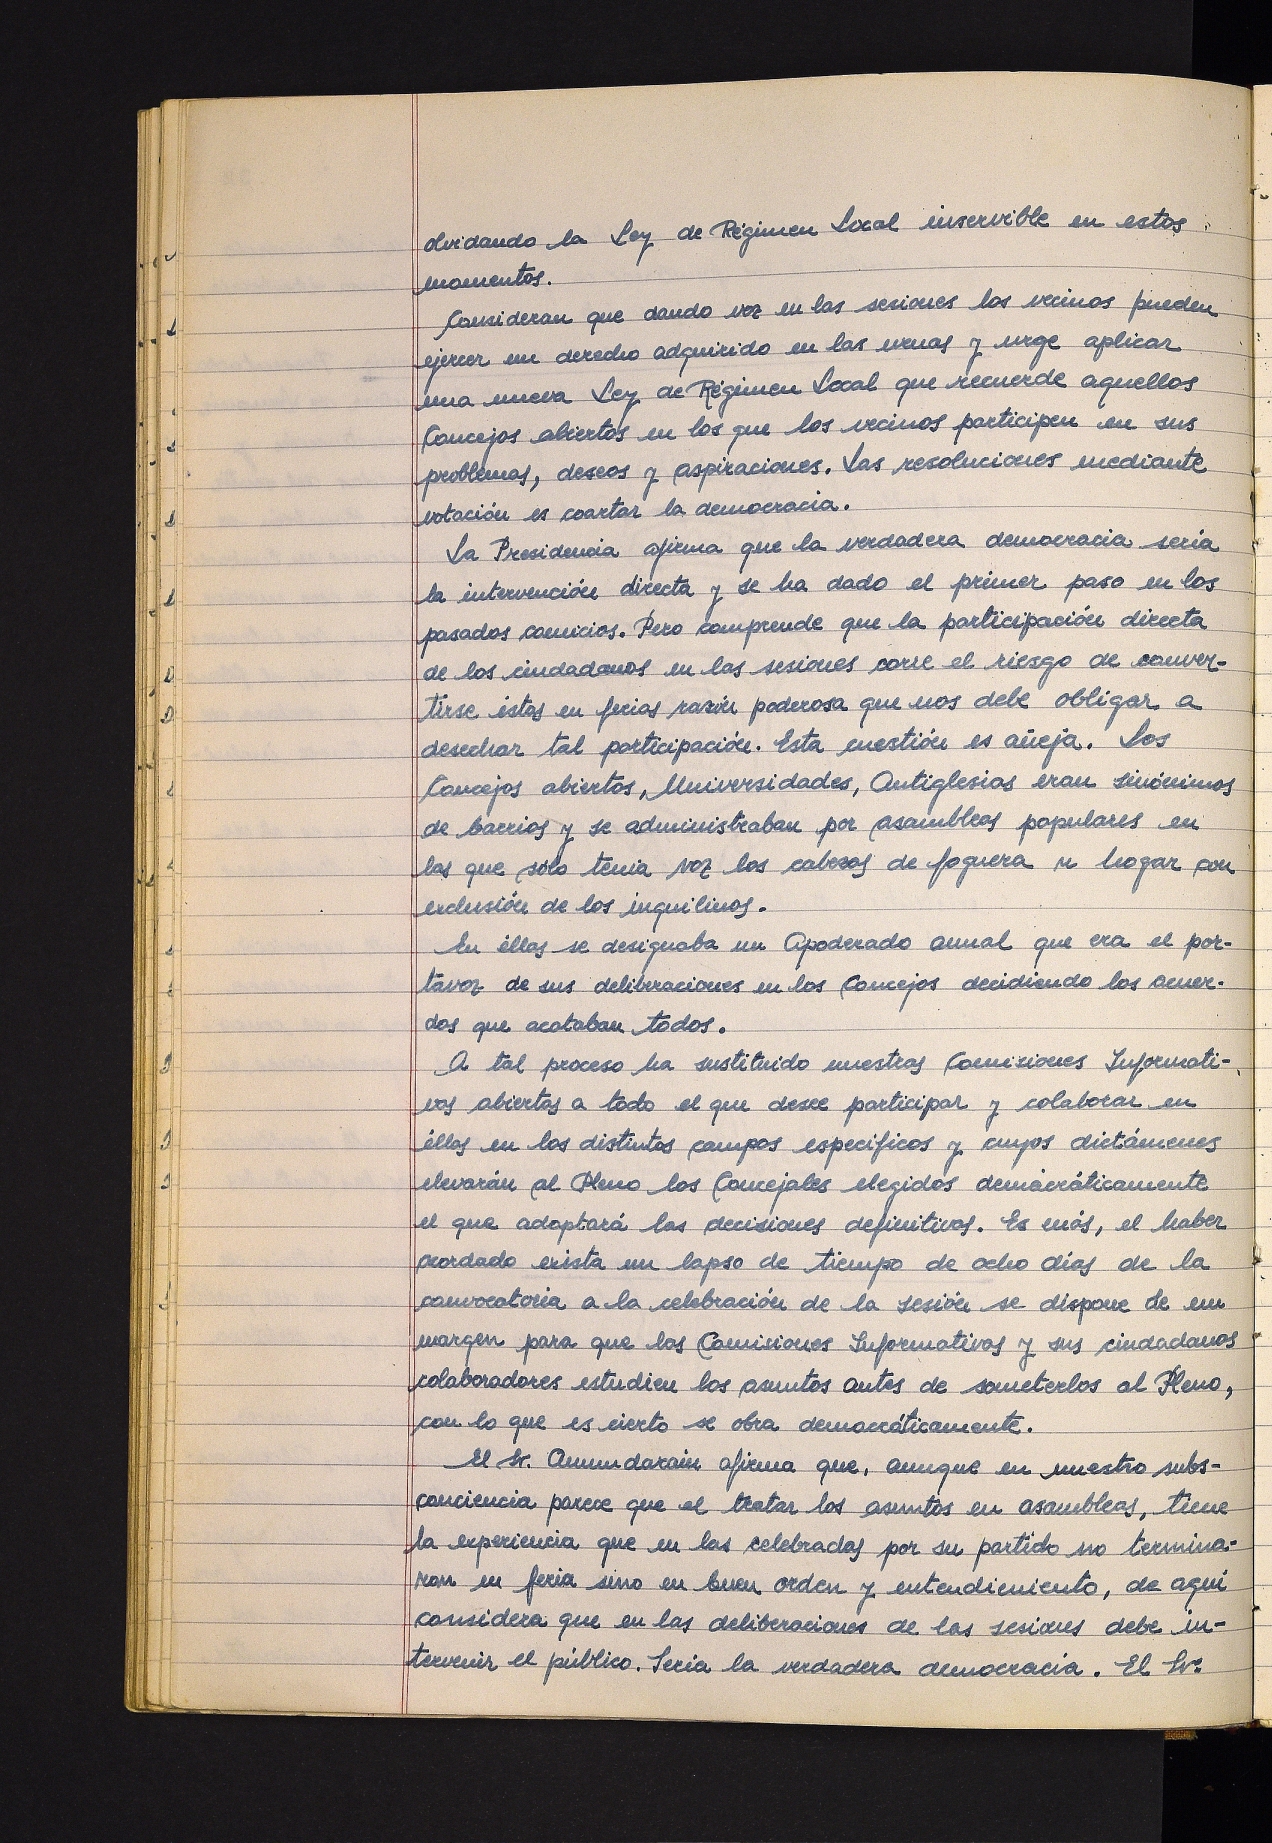 olvidando la Ley de Régimen Local inservible en estos
momentos.
Consideran que dando voz en las sesiones los vecinos pueden
ejercer un derecho adquirido en las urnas y urge aplicar
una nueva Ley de Régimen Local que recuerde aquellos
Concejos abiertos en los que los vecinos participen en sus
problemas, deseos y aspiraciones. Las resoluciones mediante
votación es coartar la democracia.
La Presidencia afirma que la verdadera democracia sería
la intervención directa y se ha dado el primer paso en los
pasados comicios. Pero comprende que la participación directa
de los ciudadanos en las sesiones corre el riesgo de conver-
tirse éstas en ferias razón poderosa que nos debe obligar a
desechar tal participación. Esta cuestión es añeja. Los
Concejos abiertos, Universidades, Antiglesias eran sinónimos
de barrios y se administraban por asambleas populares en
las que sólo tenia voz los cabezas de foguera u hogar con
exclusión de los inquilinos.
En éllas se designaba un Apoderado anual que era el por-
tavoz de sus deliberaciones en los Concejos decidiendo los acuer-
dos que acataban todos.
A tal proceso ha sustituido nuestras Comisiones Informati-
vas abiertas a todo el que desee participar y colaborar en
éllas en los distintos campos especificos y cuyos dictámenes
elevarán al Pleno los Concejales elegidos demócráticamente
el que adoptará las decisiones definitivas. Es más, el haber
acordado exista un lapso de tiempo de ocho días de la
convocatoria a la celebración de la sesión se dispone de un
margen para que las Comisiones Informativas y sus ciudadanos
colaboradores estudien los asuntos antes de someterlos al Pleno,
con lo que es cierto se obra democráticamente.
El Sr. Amundarain afirma que, aunque en nuestro subs-
conciencia parece que el tratar los asuntos en asambleas, tiene
la experiencia que en las celebradas por su partido no termina-
ron en feria sino en buen orden y entendimiento, de aquí
considera que en las deliberaciones de las sesiones debe in-
tervenir el público. Sería la verdadera democracia. El Sr.